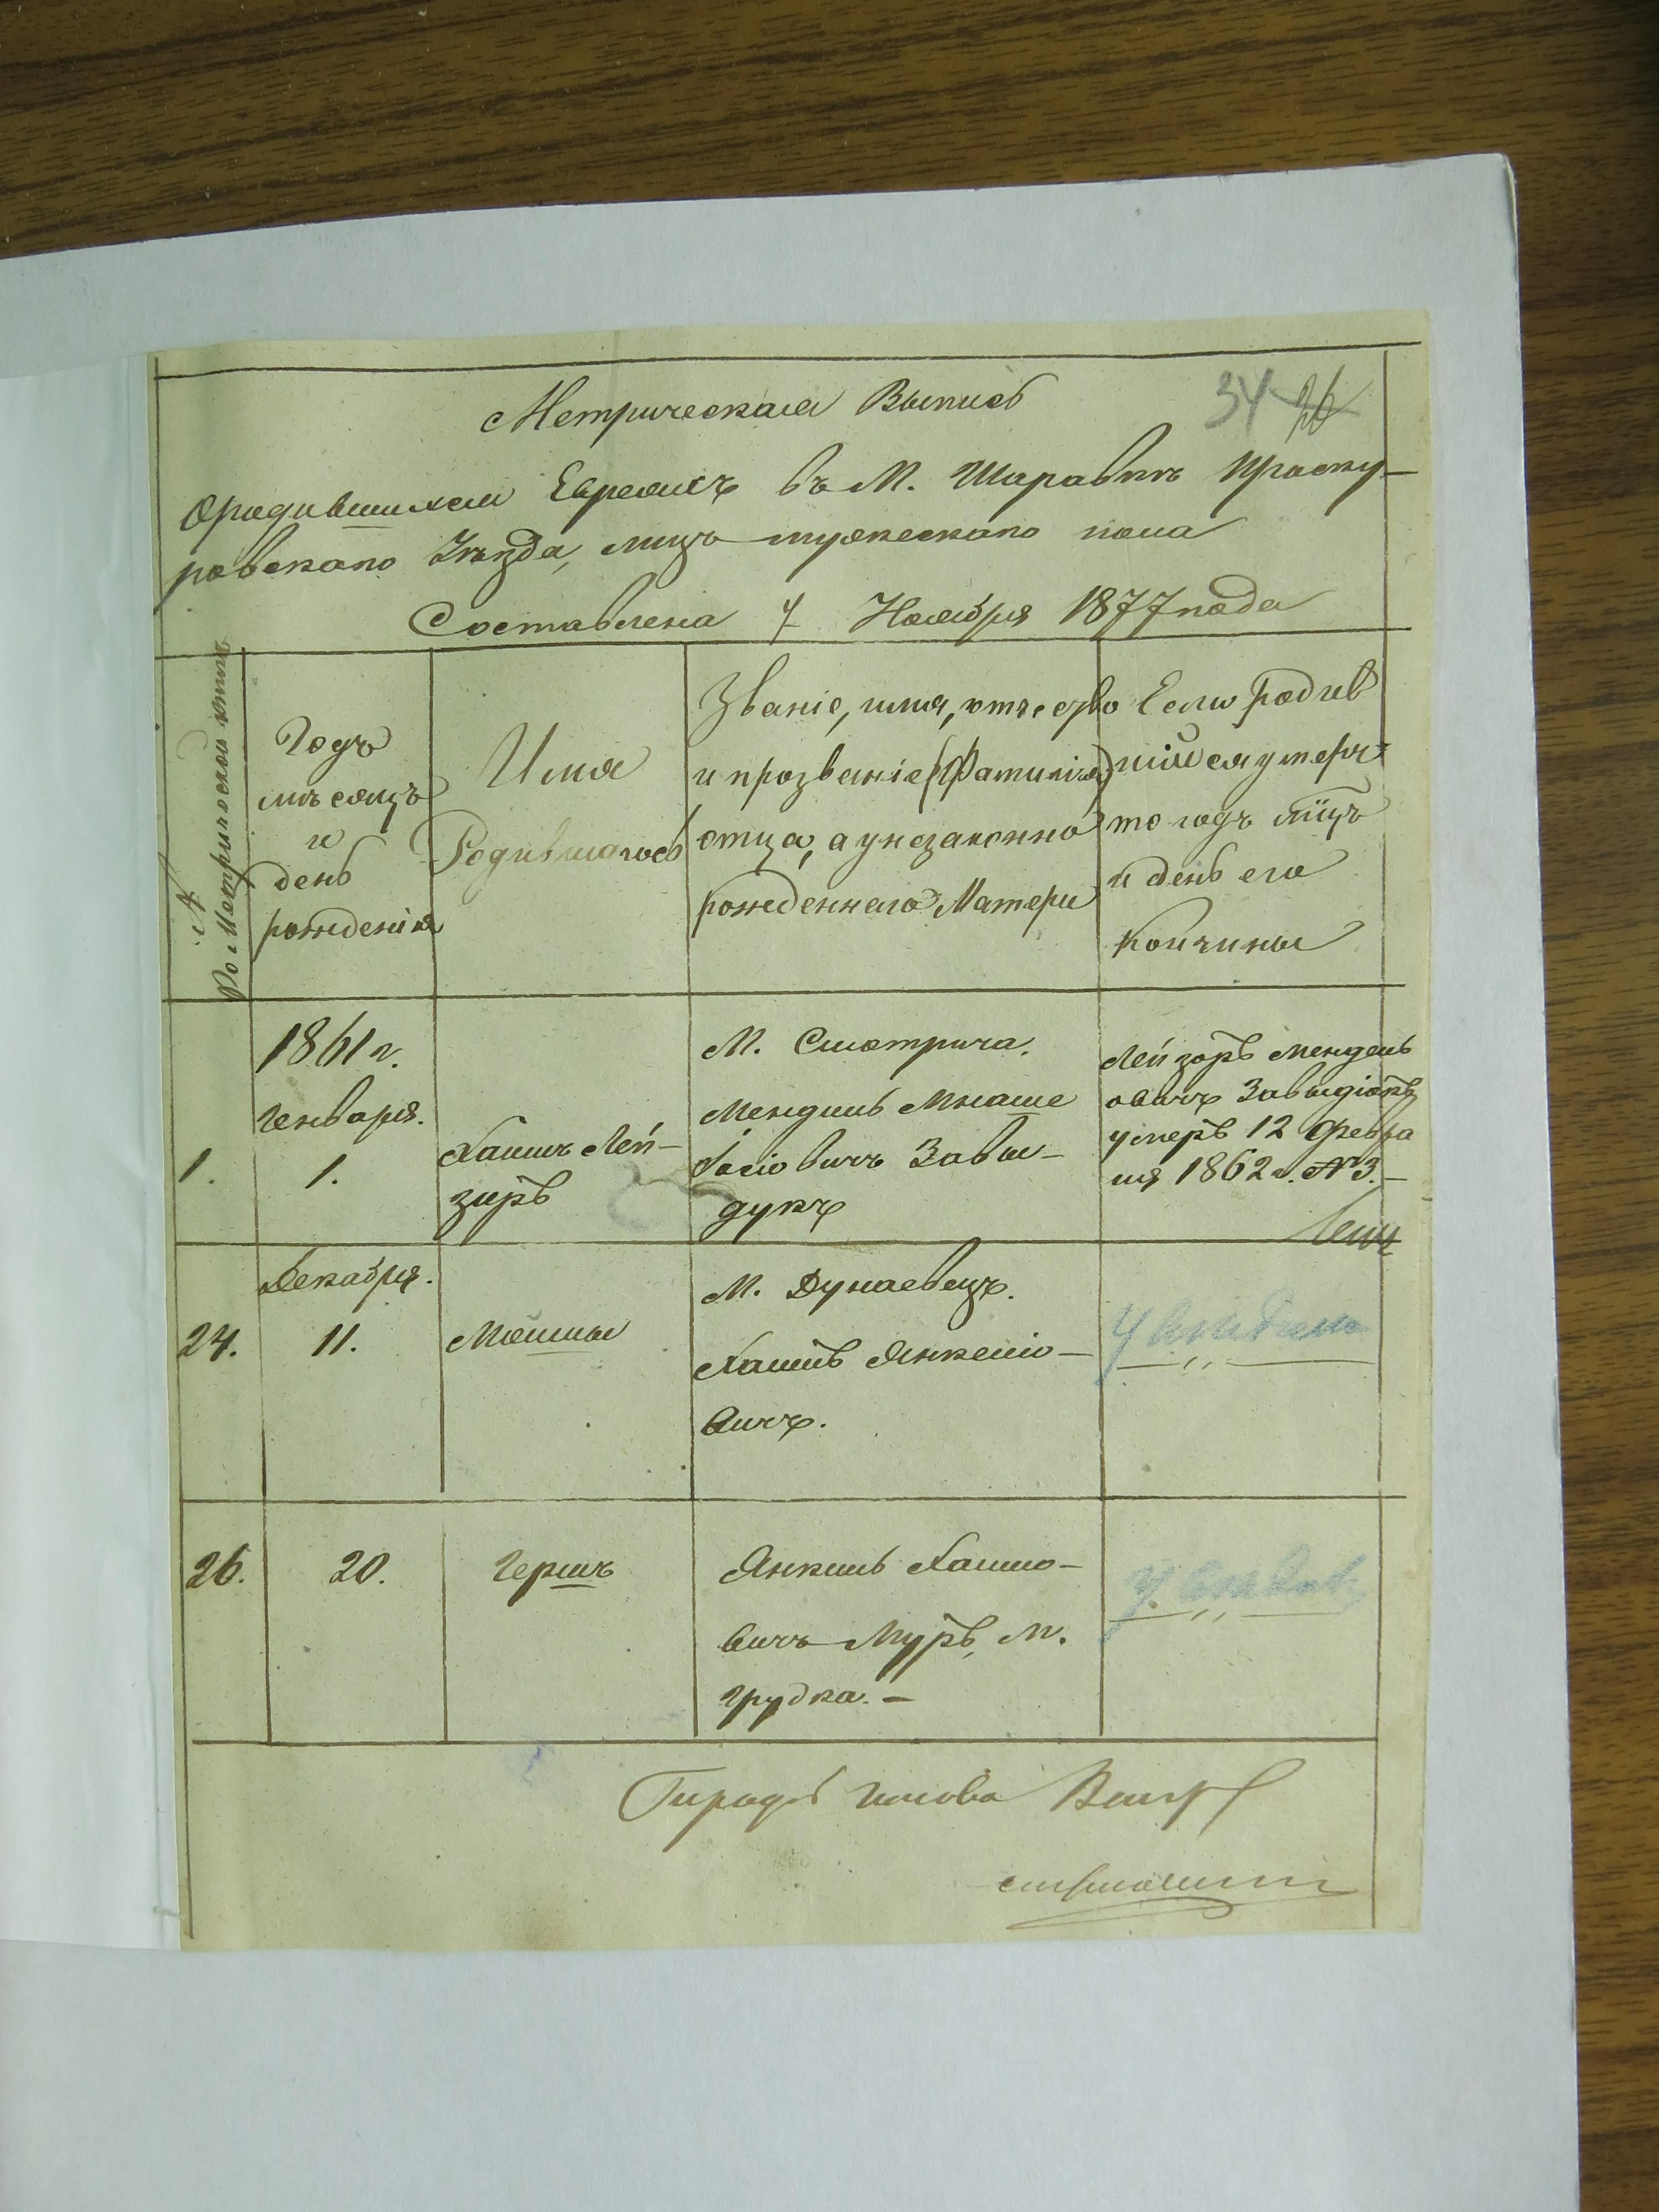 34 26
Метрическая Выпись
Ородившихся Евреяхъ въ М. Шаравкѣ Проску-
ровскаго Уѣзда, лицъ мужескаго пола
Составлена 7 Ноября 1877 года
№
По Метрической книгѣ
Годъ
мѣсяцъ
и
день
рожденія
Имя
Родившагось
Званіе, имя, отчество
и прозваніе (Фамилія)
отца, а унезаконно
рожденнаго Матери
Если родив
шійся умеръ
то годъ мѣцъ
и день его
кончины
1.
1861 г.
Генваря.
1.
Хаимъ Лей-
зоръ
М. Смотрича.
Мендель Мнаше
Іосіовичъ Завы-
дукъ
Лейзоръ Мендель
овичъ
умеръ 12 Февра
ля 1862 г. №3.-
24.
Декабря.
11.
Мошко
М. Дунаевецъ.
Хаимъ Янкеліо-
вичъ.
26.
20.
Гершъ
Янкель Хаимо-
вичъ Муръ, М.
Грудка.-